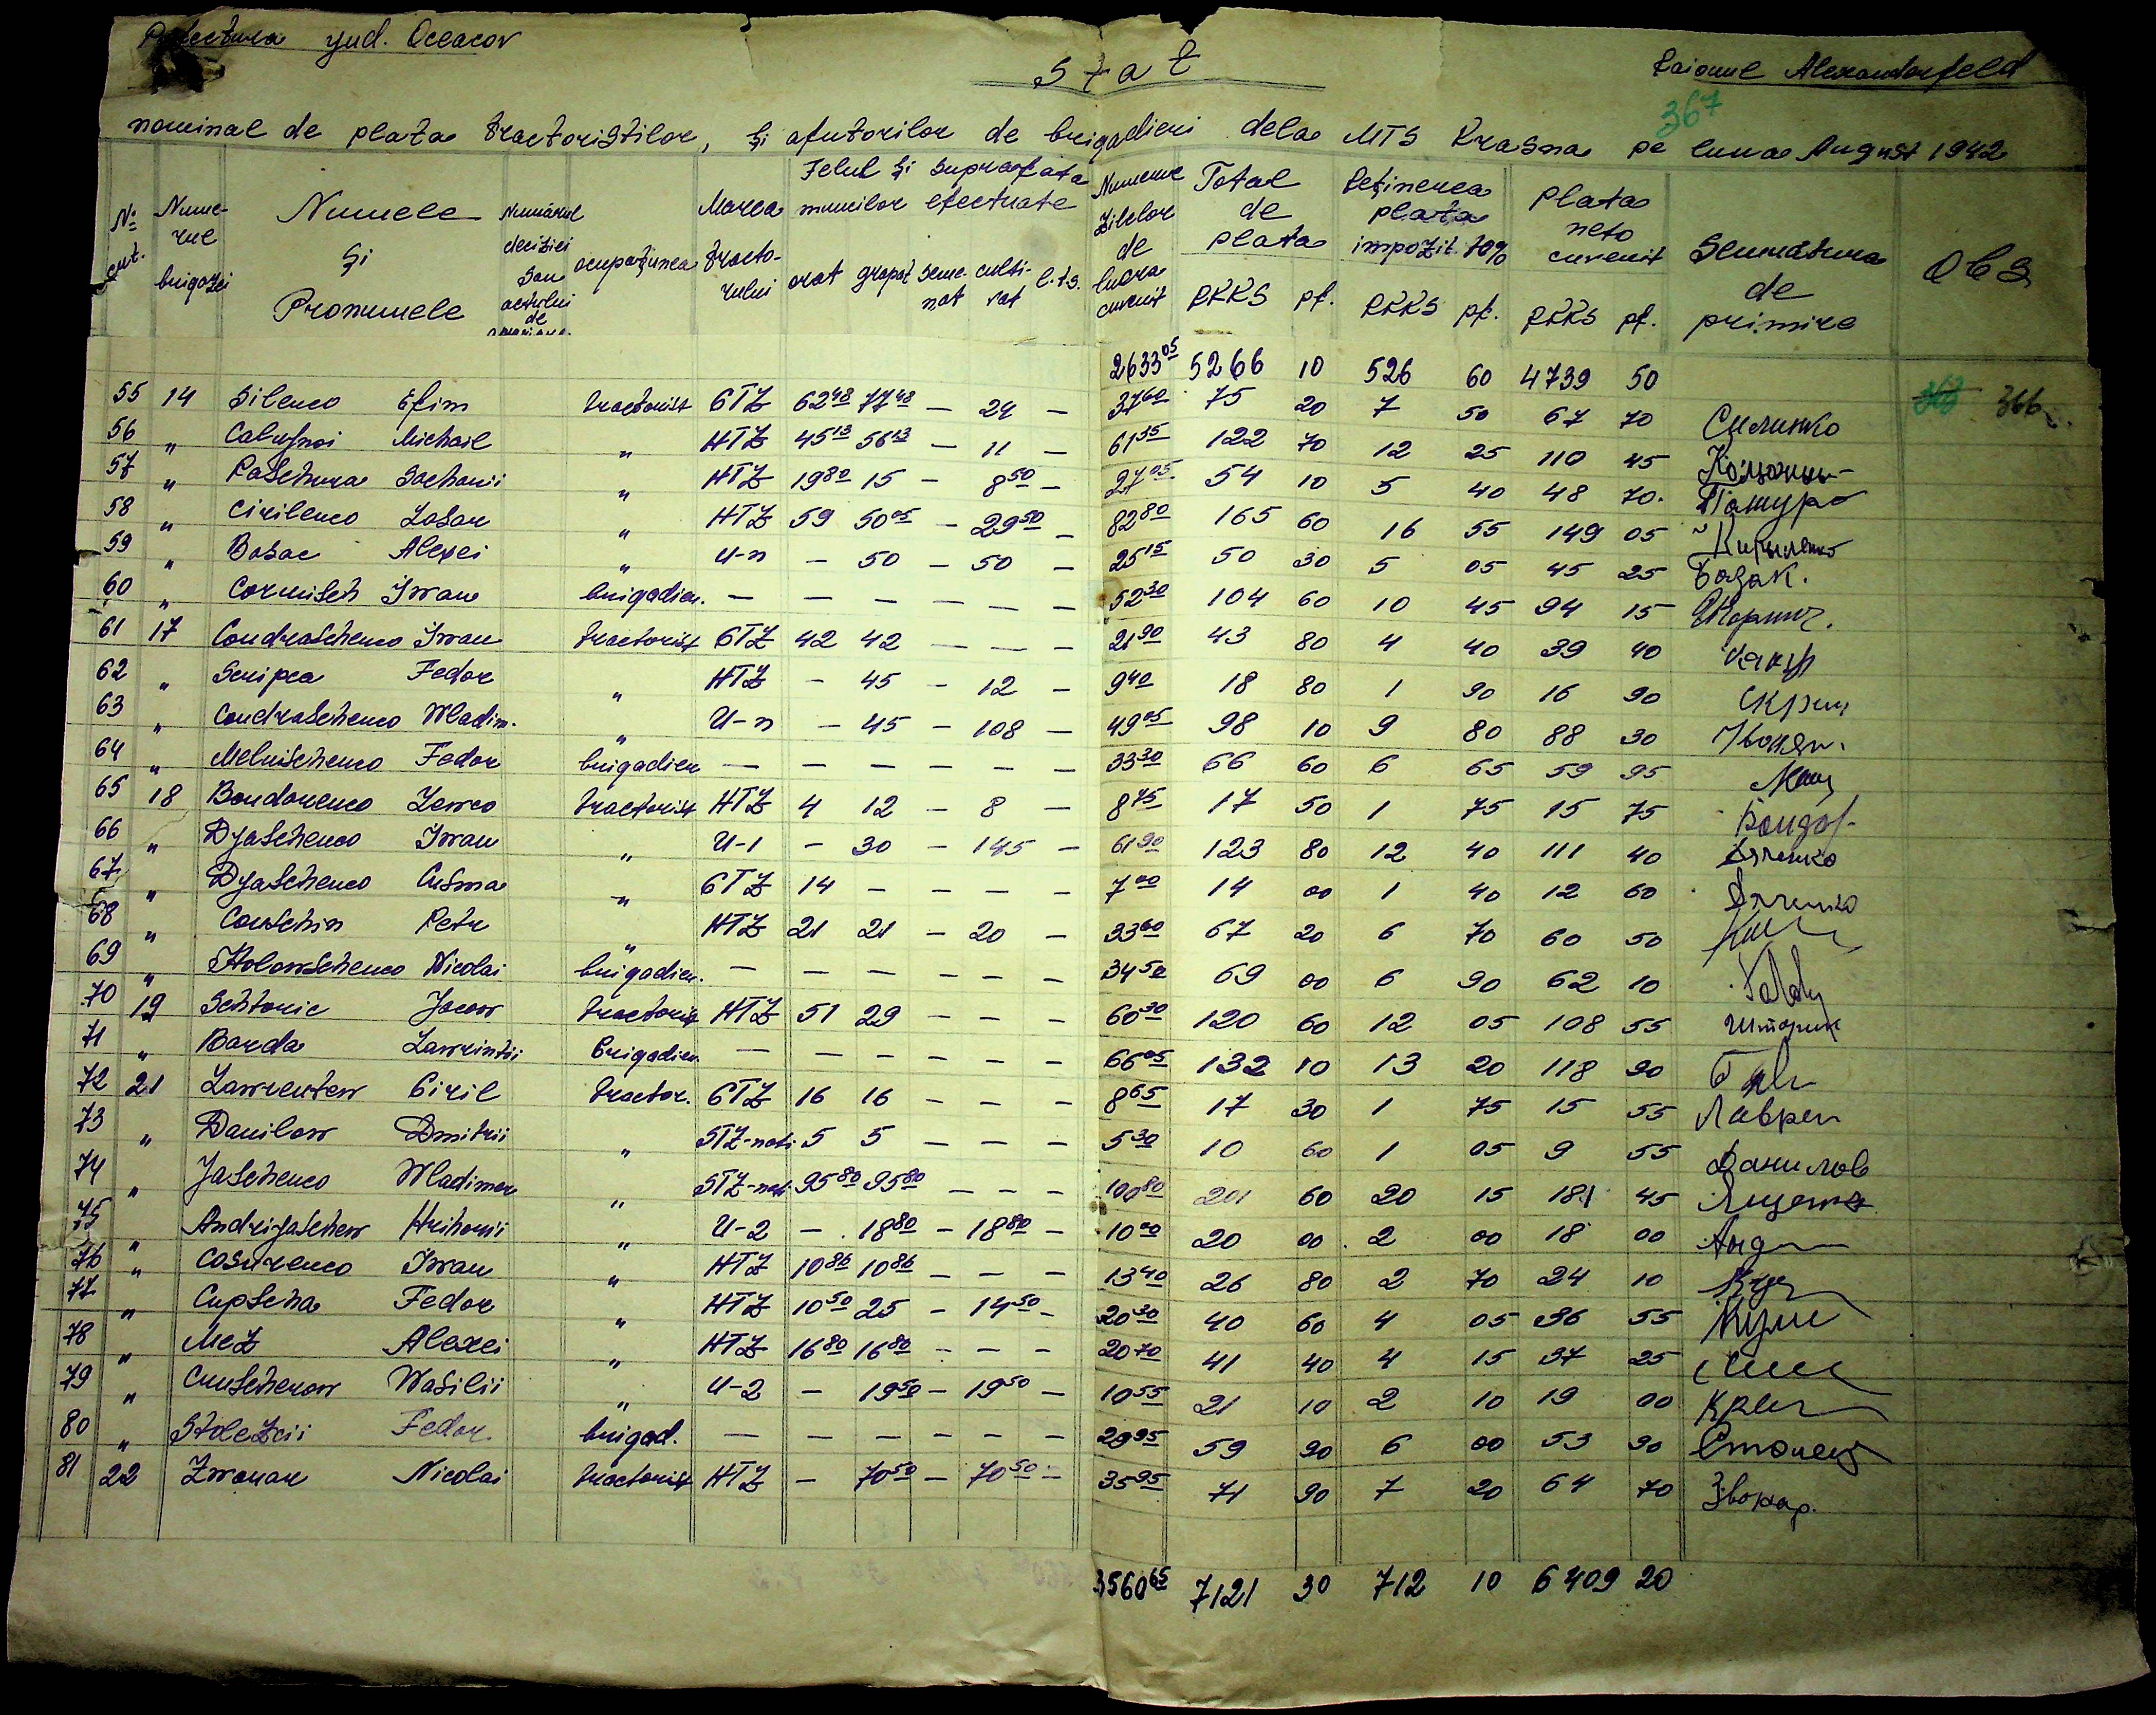 Prefectura jud. Oceacov
Stat
Raionul Alexandorfeld
367
nominal de plata tractoristilor, și ajutorilor de brigadieri dela MTS Krasna pe luna August 1942
№ crt. Numerul brigazei Numele și Pronumele Numărul deciziei sau actului de ocupațiunea Marca tractorului Felul și suprafata muncilor efectuate arat grapat semenat cultivat l.ts. Numerul zilelor de lucru cuvenit Total de plata RKKS pf. Reținerea plata impozit. 10% RKKS pf. Plata neto cuvenit RKKS pf. Semnatura de primire Obs
2633 05 5266 10 526 60 4739 50
55 14 Silenco Efim tractorist СТZ 62 48 77 48 — 24 — 37 60 75 20 7 50 67 70 Силинко 366
56 " Calujnoi Michail " HTZ 45 13 56 13 — 11 — 61 35 122 70 12 25 110 45
57 " Paschura Sacharii " HTZ 19 80 15 — 8 50 — 27 05 54 10 5 40 48 70 Пашура
58 " Cirilenco Lasar " HTZ 59 50 05 — 29 50 — 82 80 165 60 16 55 149 05 Кириленко
59 " Bosac Alexei " U-n — 50 — 50 — 25 15 50 30 5 05 45 25 Бозак.
60 " Cornisch Iwan brigadier. — — — — — — 52 30 104 60 10 45 94 15
61 17 Condraschenco Iwan tractorist СТZ 42 42 — — — 21 90 43 80 4 40 39 40
62 " Scripca Fedor " HTZ — 45 — 12 — 9 40 18 80 1 90 16 90 Скрип
63 " Condraschenco Wladim. " U-n — 45 — 108 — 49 05 98 10 9 80 88 30
64 " Melnischenco Fedor brigadier — — — — — — 33 30 66 60 6 65 59 95
65 18 Bondarenco Lewco tractorist HTZ 4 12 — 8 — 8 75 17 50 1 75 15 75 Бондар
66 " Djaschenco Iwan " U-1 — 30 — 145 — 61 90 123 80 12 40 111 40
67 " Djaschenco Cusma " СТZ 14 — — — — 7 00 14 00 1 40 12 60
68 " Cowschin Petr " HTZ 21 21 — 20 — 33 60 67 20 6 70 60 50
69 " Holowschenco Nicolai brigadier. — — — — — — 34 50 69 00 6 90 62 10
70 19 Schtoric Jacow tractorist HTZ 51 29 — — — 60 30 120 60 12 05 108 55 Шторик
71 " Barda Lawrintii brigadier. — — — — — — 66 05 132 10 13 20 118 90
72 21 Lawrentew Ciril tractor. СТZ 16 16 — — — 8 65 17 30 1 75 15 55 Лаврен
73 " Danilow Dmitrii " STZ-nati 5 5 — — — 5 30 10 60 1 05 9 55 Данилов
74 " Jaschenco Wladimer " STZ-nati 95 80 95 80 — — — 100 80 201 60 20 15 181 45 Ященко
75 " Andrijaschew Hrihorii " U-2 — 18 80 — 18 80 — 10 00 20 00 2 00 18 00 Анд
76 " Cosurenco Iwan " HTZ 10 86 10 86 — — — 13 40 26 80 2 70 24 10
77 " Cupscha Fedor " HTZ 10 50 25 — 14 50 — 20 30 40 60 4 05 36 55
78 " Mez Alexei " HTZ 16 80 16 80 — — — 20 70 41 40 4 15 37 25
79 " Cruscherow Wasilii " U-2 — 19 50 — 19 50 — 10 55 21 10 2 10 19 00
80 " Stolezcii Fedor. brigad. — — — — — — 29 95 59 90 6 00 53 90 Столец
81 22 Zwonar Nicolai tractorist HTZ — 70 50 — 70 50 — 35 95 71 90 7 20 64 70 Звонар.
3560 65 7121 30 712 10 6409 20